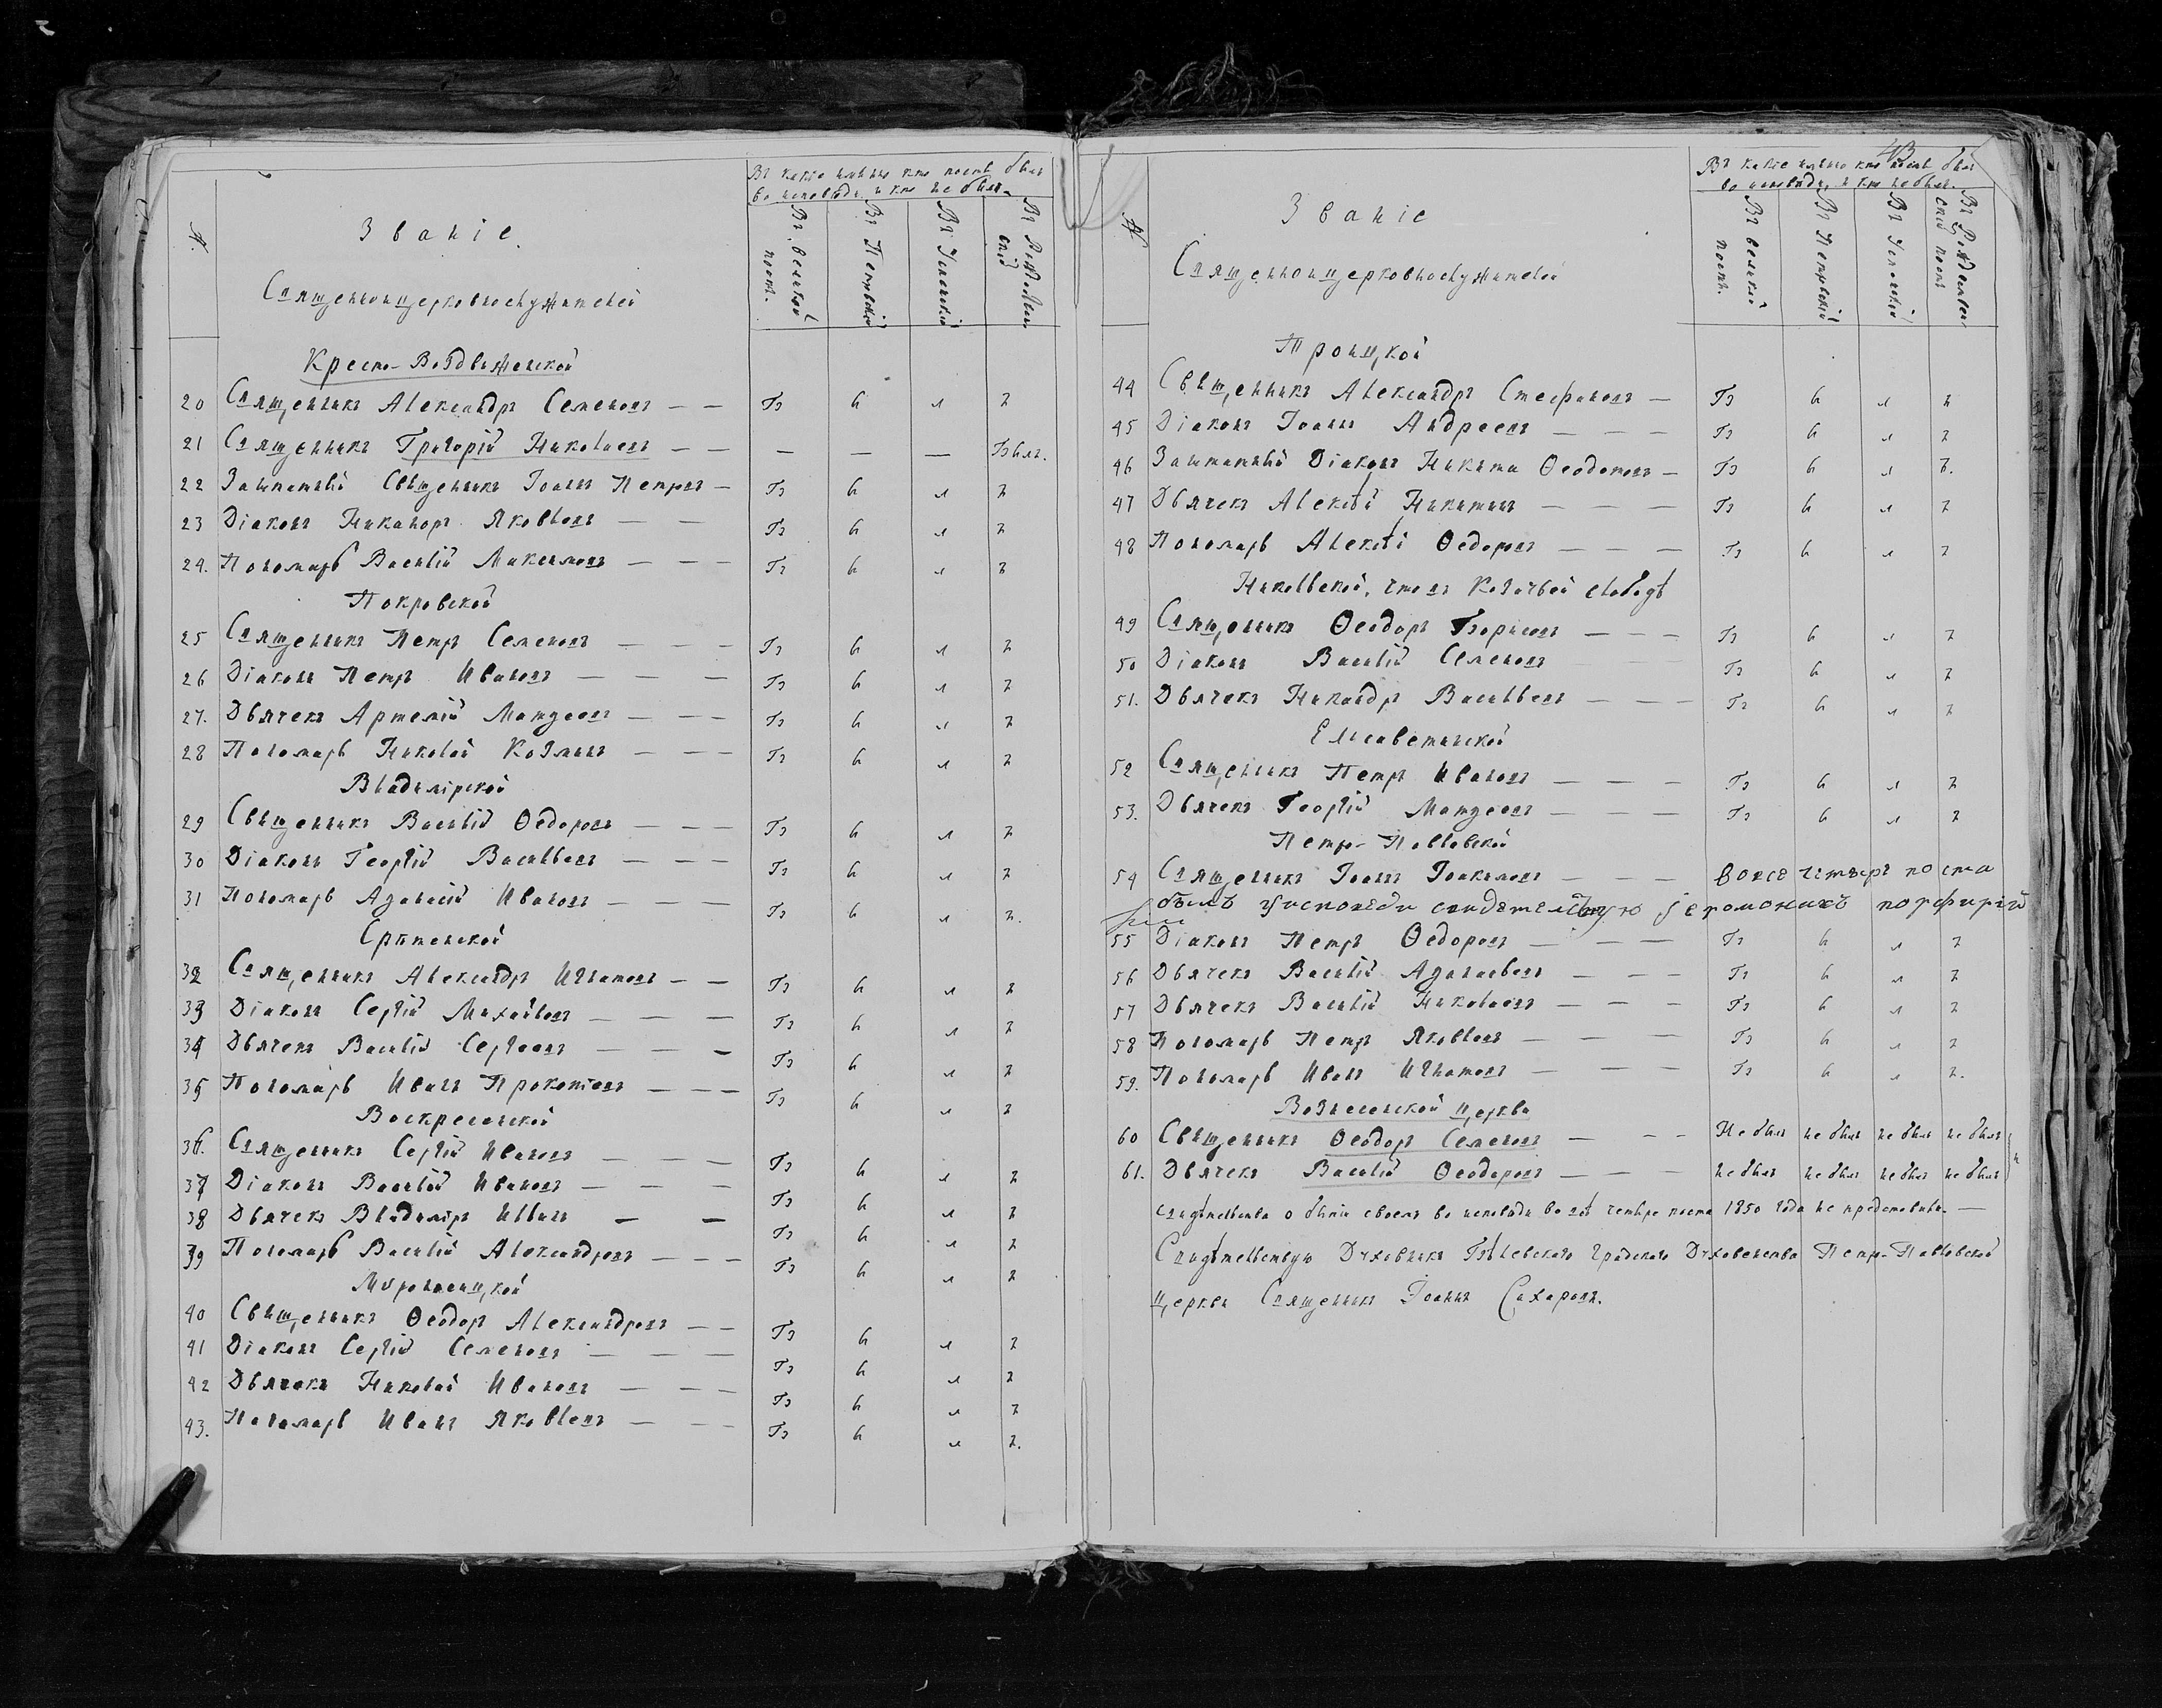 Въ какіе именно кто постъ былъ
во исповѣди, и кто не былъ.
№
Званіе
Священноцерковнослужителей
Въ великій постъ.
Въ Петровскій
Въ Успенскій
Въ Рождественскій
Кресто-Воздвиженской
20 Священникъ Александръ Семеновъ — — Б ы л ъ
21 Священникъ Григорій Николаевъ — — — — — Былъ.
22 Заштатный Священникъ Іоаннъ Петровъ — Б ы л ъ
23 Діаконъ Никаноръ Яковлевъ — — Б ы л ъ
24. Пономарь Василій Максимовъ — — — Б ы л ъ
Покровской
25 Священникъ Петръ Семеновъ — — — Б ы л ъ
26 Діаконъ Петръ Ивановъ — — — Б ы л ъ
27. Дьячекъ Артемій Матѳеевъ — — — Б ы л ъ
28 Пономарь Николай Козминъ — — — Б ы л ъ
Владимірской
29 Священникъ Василій Ѳедоровъ — — — Б ы л ъ
30 Діаконъ Георгій Васильевъ — — — Б ы л ъ
31 Пономарь Аѳанасій Ивановъ — — — Б ы л ъ.
Срѣтенской
32 Священникъ Александръ Игнатовъ — — Б ы л ъ
33 Діаконъ Сергій Михайловъ — — — Б ы л ъ
34 Дьячекъ Василій Сергеевъ — — — Б ы л ъ
35 Пономарь Иванъ Прокопіевъ — — — Б ы л ъ
Воскресенской
36. Священникъ Сергій Ивановъ — — — Б ы л ъ
37 Діаконъ Василій Ивановъ — — — Б ы л ъ
38 Дьячекъ Владиміръ Ильинъ — — Б ы л ъ
39 Пономарь Василій Александровъ — — — Б ы л ъ
Мѵроносицкой
40 Священникъ Ѳеодоръ Александровъ — — Б ы л ъ
41 Діаконъ Сергій Семеновъ — — — Б ы л ъ
42 Дьячекъ Николай Ивановъ — — — Б ы л ъ
43. Пономарь Иванъ Яковлевъ — — — Б ы л ъ.
43
Въ какіе именно кто постъ былъ
во исповѣди, и кто не былъ.
№
Званіе
Священноцерковнослужителей
Въ великій постъ.
Въ Петровскій
Въ Успенскій
Въ Рождественскій постъ
Троицкой
44 Священникъ Александръ Стефановъ — Б ы л ъ
45 Діаконъ Іоаннъ Андреевъ — — — Б ы л ъ
46 Заштатный Діаконъ Никита Ѳеодотовъ — Б ы л ъ.
47 Дьячекъ Алексѣй Никитинъ — — — Б ы л ъ
48 Пономарь Алексѣй Ѳедоровъ — — — Б ы л ъ
Никольской, что въ Козачьей слободѣ
49 Священникъ Ѳеодоръ Борисовъ — — — Б ы л ъ
50 Діаконъ Василій Семеновъ Б ы л ъ
51. Дьячекъ Никандръ Васильевъ — — — Б ы л ъ
Елисаветинской
52 Священникъ Петръ Ивановъ — — — Б ы л ъ
53. Дьячекъ Георгій Матѳеевъ — — — Б ы л ъ
Петро-Павловской
54 Священникъ Іоаннъ Іоакимовъ — — — вовсе четыре поста
былъ уисповеди свидетельствую іеромонахъ порфирій
55 Діаконъ Петръ Ѳедоровъ — — — Б ы л ъ
56 Дьячекъ Василій Аѳанасьевъ — — — Б ы л ъ
57 Дьячекъ Василій Николаевъ — — — Б ы л ъ
58 Пономарь Петръ Яковлевъ — — — Б ы л ъ
59. Пономарь Иванъ Игнатовъ — — — Б ы л ъ.
Вознесенской церкви
60 Священникъ Ѳеодоръ Семеновъ — — — Не былъ не былъ не былъ не былъ
61. Дьячекъ Василій Ѳеодоровъ — — — не былъ не былъ не былъ не былъ и
свидѣтельства о бытіи своемъ во исповѣди во всѣ четыре поста 1850 года не представили. —
Свидѣтельствую Духовникъ Бѣлевскаго Градскаго Духовенства Петро-Павловской
церкви Священникъ Іоаннъ Сахаровъ.